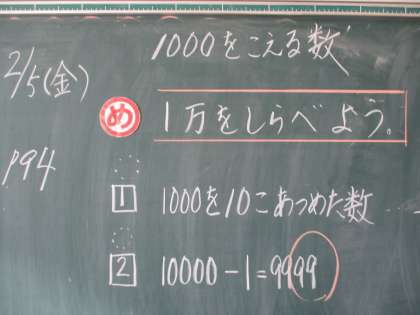 1000をこえる数
2/5(金)
め
1万をしらべよう。
P94
1
1000を10こあつめた数
2
10000-1=9999